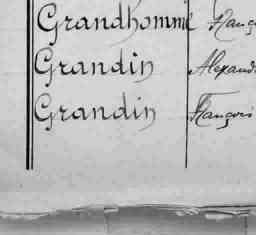 Grandhomme Franç
Grandin Alexand
Grandin François